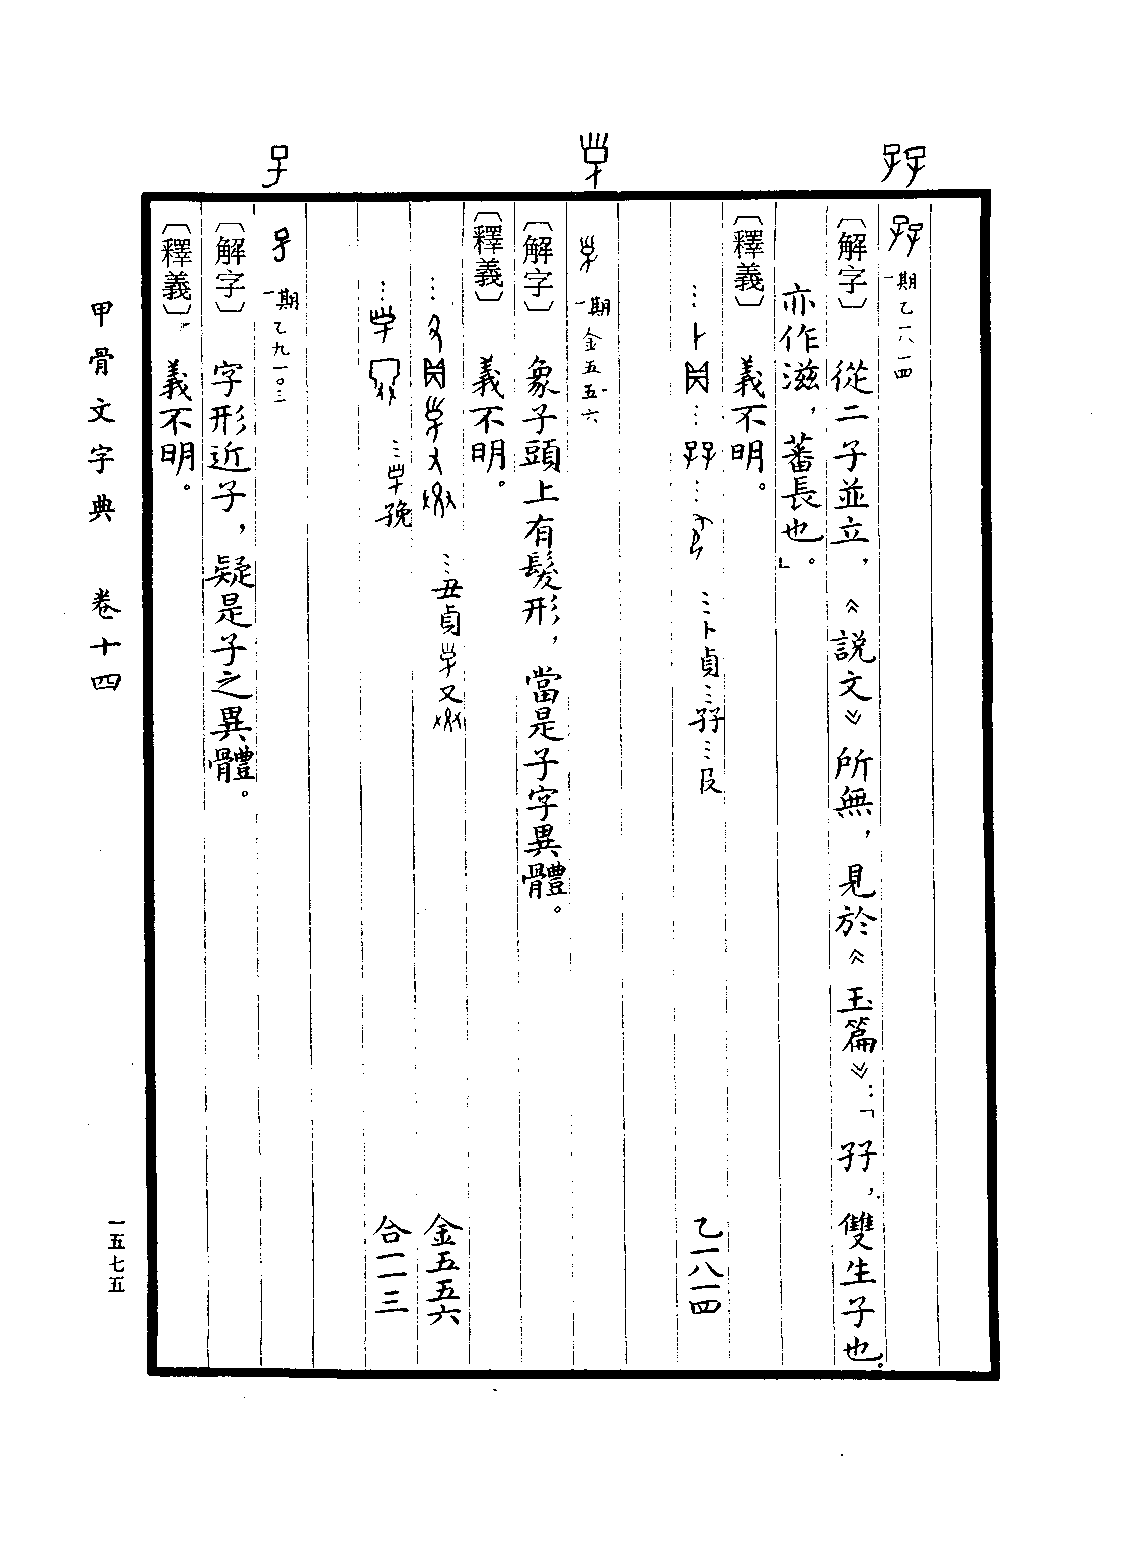 孖
一期乙一八一四
〔解字〕 從二子並立，《說文》所無，見於《玉篇》：「孖，雙生子也。
亦作滋，蕃長也」。
〔釋義〕 義不明。
…卜…… …卜貞…孖…𠬝 乙一八一四
一期金五五六
〔解字〕 象子頭上有髮形，當是子字異體。
〔釋義〕 義不明。
… …丑貞又 金五五六
… …㝃 合一一三
子
一期乙九一〇三
〔解字〕 字形近子，疑是子之異體。
〔釋義〕 義不明。
甲骨文字典 卷十四
一五七五